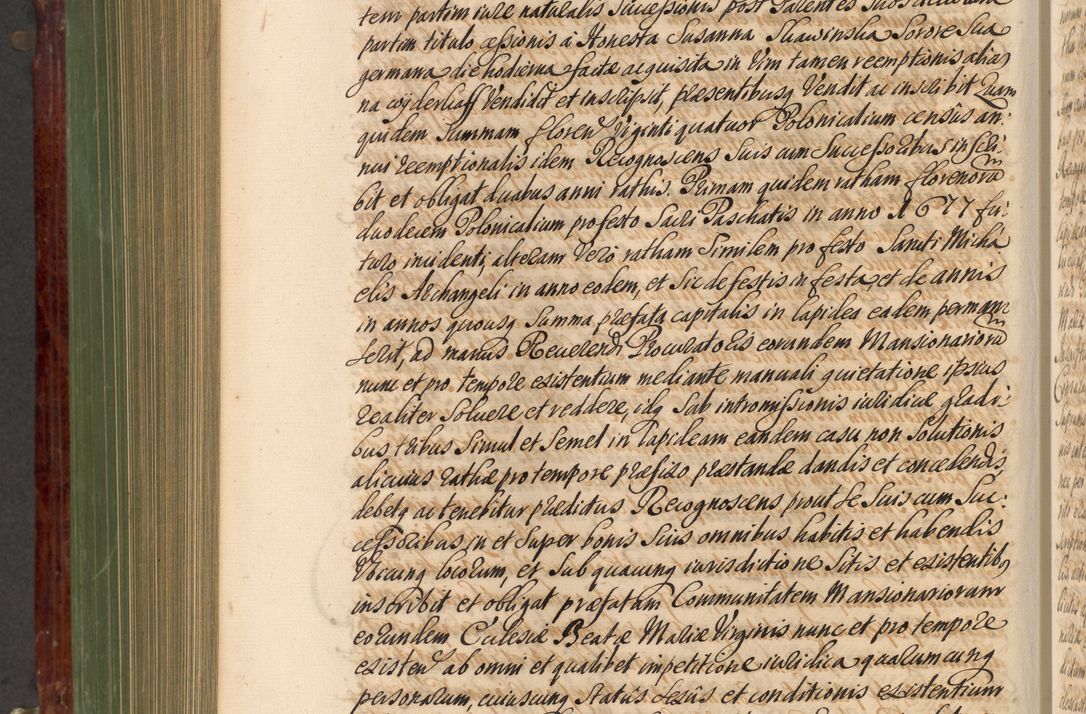 tem partim iure naturalis Successionis post Parentes Suos
partim titulo cessionis à Honesta Susanna Skawinska Sorore Sua
germana die hodierna facta acquisita in Vim tamen reemptionis alias
na wyderkaff Vendidit et inscripsit, præsentibusq Vendit ac inscribit Quam
quidem Summam floren Viginti quatuor Polonicalium census an:
nui reemptionalis idem Recognoscens Suis cum Successoribus inscri:
bit et obligat duabus anni rathis. Primam quidem ratham florenorũ
duodecem Polonicalium pro festo Sacri Paschatis in anno 1677 fu:
turo incidenti, alteram Vero ratham Similem pro festo Sancti Micha
elis Archangeli in anno eodem, et Sic de festis in festa et de annis
in annos quousq Summa præfata capitalis in lapidea eadem perman:
Serit, ad manus Reverendi Procuratoris eorundem Mansionariorũ
nunc et pro tempore existentium mediante manuali quietatione ipsius
realiter Solvere et reddere, idq Sub intromissionis iuridicæ gradi:
bus tribus Simul et Semel in lapideam eandem casu non Solutionis
alicuius rathæ pro tempore præfixo præstandæ dandis et concedendis,
debetq ac tenebitur præditus Recognoscens prout Se Suis cum Suc:
cessoribus, in et Super bonis Suis omnibus habitis et habendis
Vbicunq locorum, et Sub quacunq iurisdictione Sitis et existentibq
inscribit et obligat præfatam Communitatem Mansionariorum
eorundem Ecclesiæ Beatæ Mariæ Virginis nunc et pro tempore
existen ab omni et qualibet impetitione iuridica quarumcunq
personarum, cuiuscunq Status Sexus et conditionis existentium